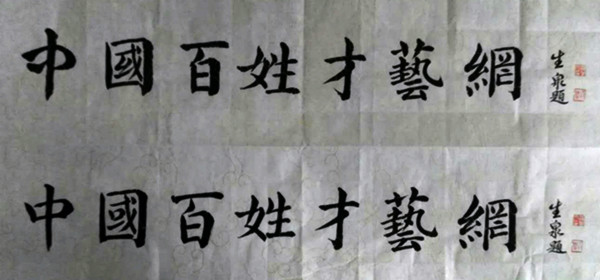 中國百姓才藝網
生泉題
中國百姓才藝網
生泉題